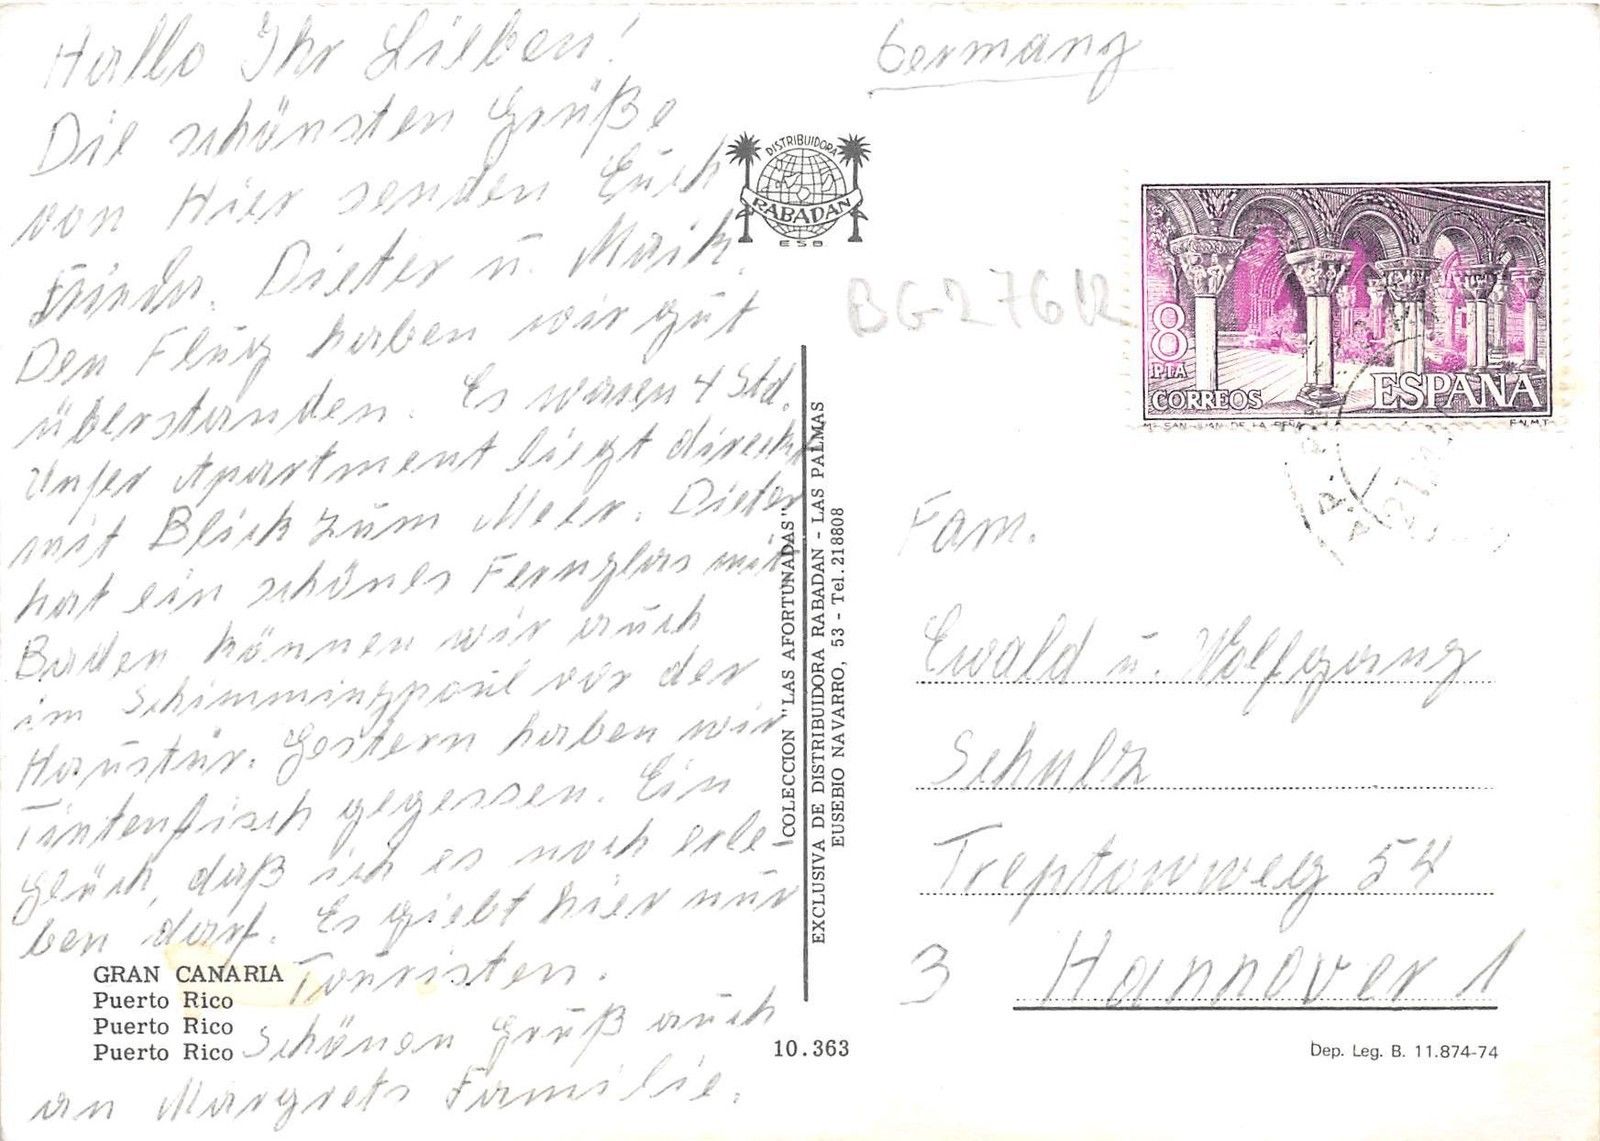 Hallo Ihr Lieben!
Die schönsten Grüße
von Hier senden Euch
Frieda, Dieter u. Maik.
Den Flug haben wir gut
überstanden. Es waren 4 Std.
Unser Apartment liegt direkt
mit Blick zum Meer. Dieter
hat ein schönes Fernglas mit
Baden können wir auch
im Schimmingpoul vor der
Haustür. Gestern haben wir
Tintenfisch gegessen. Ein
Glück, daß ich es noch erle-
ben darf. Es giebt hier nur
Touristen.
Schönen Gruß auch
an Margrets Familie.
GRAN CANARIA
Puerto Rico
Puerto Rico
Puerto Rico
10.363
DISTRIBUIDORA
RABADAN
ESB
COLECCION "LAS AFORTUNADAS"
EXCLUSIVA DE DISTRIBUIDORA RABADAN - LAS PALMAS
EUSEBIO NAVARRO, 53 - Tel. 218808
Germany
BG27612
8
PTA
CORREOS
ESPAÑA
Mº SAN JUAN DE LA PEÑA
F.N.M.T.
Fam.
Ewald u. Wolfgang
Schulz
Treptowweg 54
3 Hannover 1
Dep. Leg. B. 11.874-74